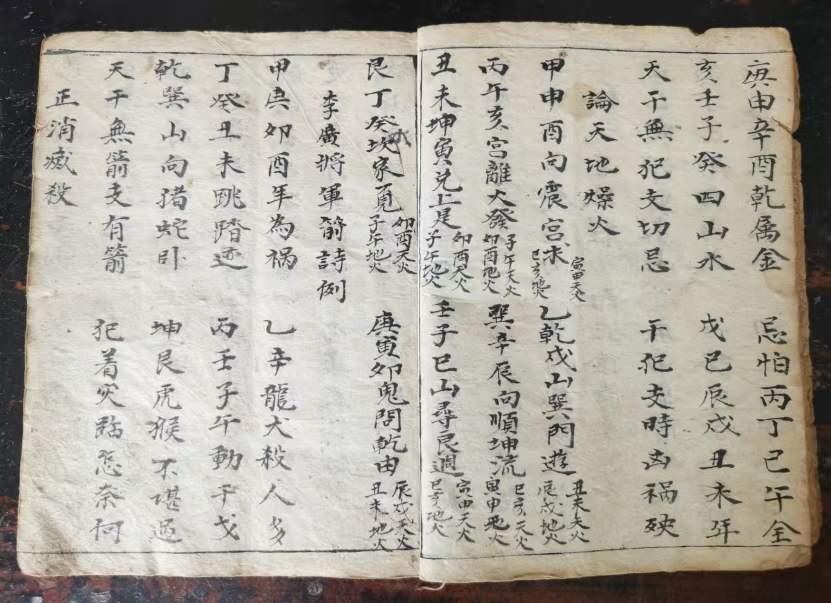 庚申辛酉乾属金 忌怕丙丁巳午全
亥壬子癸四山水 戊巳辰戌丑未年
天干無犯支切忌 干犯支時凶禍殃
論天地燥火
甲申酉向震宮求 寅申天火 巳亥地火 乙乾戌山巽門遊 丑未天火 辰戌地火
丙午亥宫離大發 子午天火 卯酉地火 巽辛辰向順坤流 巳亥天火 寅申地火
丑未坤寅兑上是 卯酉天火 子午地火 壬子巳山尋艮週 寅申天火 巳亥地火
艮丁癸坎家覓 卯酉天火 子午地火 庚寅卯鬼問乾由 辰戌天火 丑未地火
李廣將軍箭詩例
甲庚卯酉年為禍 乙辛龍犬殺人多
丁癸丑未跳踏迹 丙壬子午動干戈
乾巽山向猪蛇卧 坤艮虎猴不堪過
天干無箭支有箭 犯着灾臨怎奈何
正消滅殺